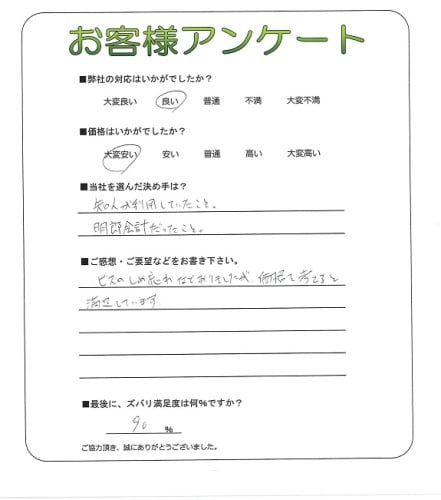 お客様アンケート
■弊社の対応はいかがでしたか？
大変良い 良い 普通 不満 大変不満
■価格はいかがでしたか？
大変安い 安い 普通 高い 大変高い
■当社を選んだ決め手は？
知人が利用していたこと。
明朗会計だったこと。
■ご感想・ご要望などをお書き下さい。
ビスのしめ忘れなどありましたが、価格で考えると
満足しています
■最後に、ズバリ満足度は何%ですか？
90 %
ご協力頂き、誠にありがとうございました。